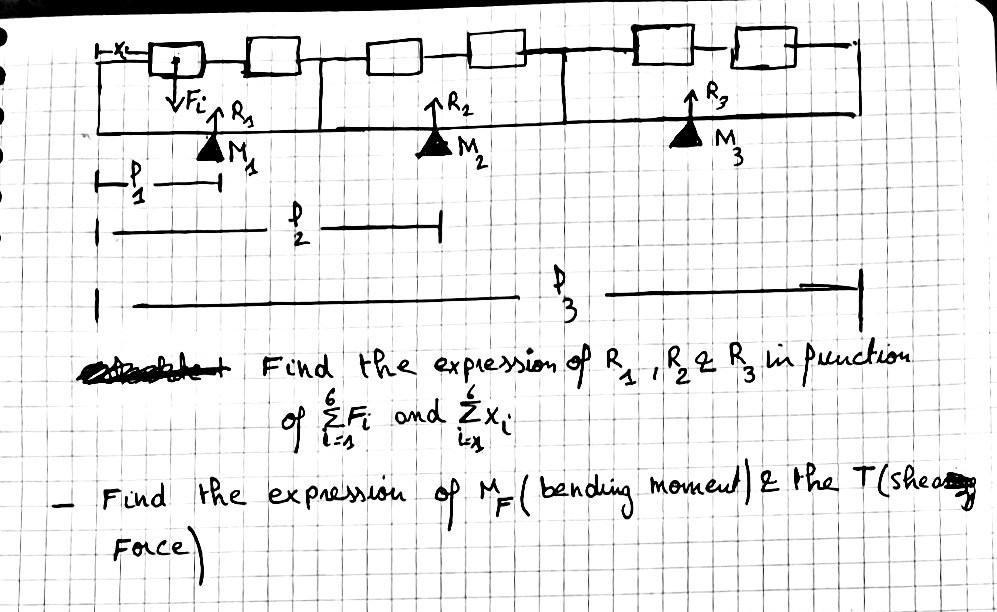 xi
Fi R1 R2 R3
M1 M2 M3
P1
P2
P3
Find the expression of R1, R2 & R3 in function
of 6Σi=1 Fi and 6Σi=1 xi
- Find the expression of MF (bending moment) & the T (shearing
Force)